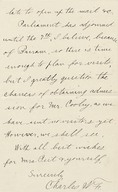 late to open at the next
Parliament has adjourned
until the 9th, I believe, because
of Parnam, so there is time
enough to plan for seats,
but I greatly question the
chances of obtaining admis-
sion for Mrs. Cowley, as we
have sent no writers, yet
However, we shall see.
With all best wishes
for Mrs. and yourself
Sincerely
Charles W. F.